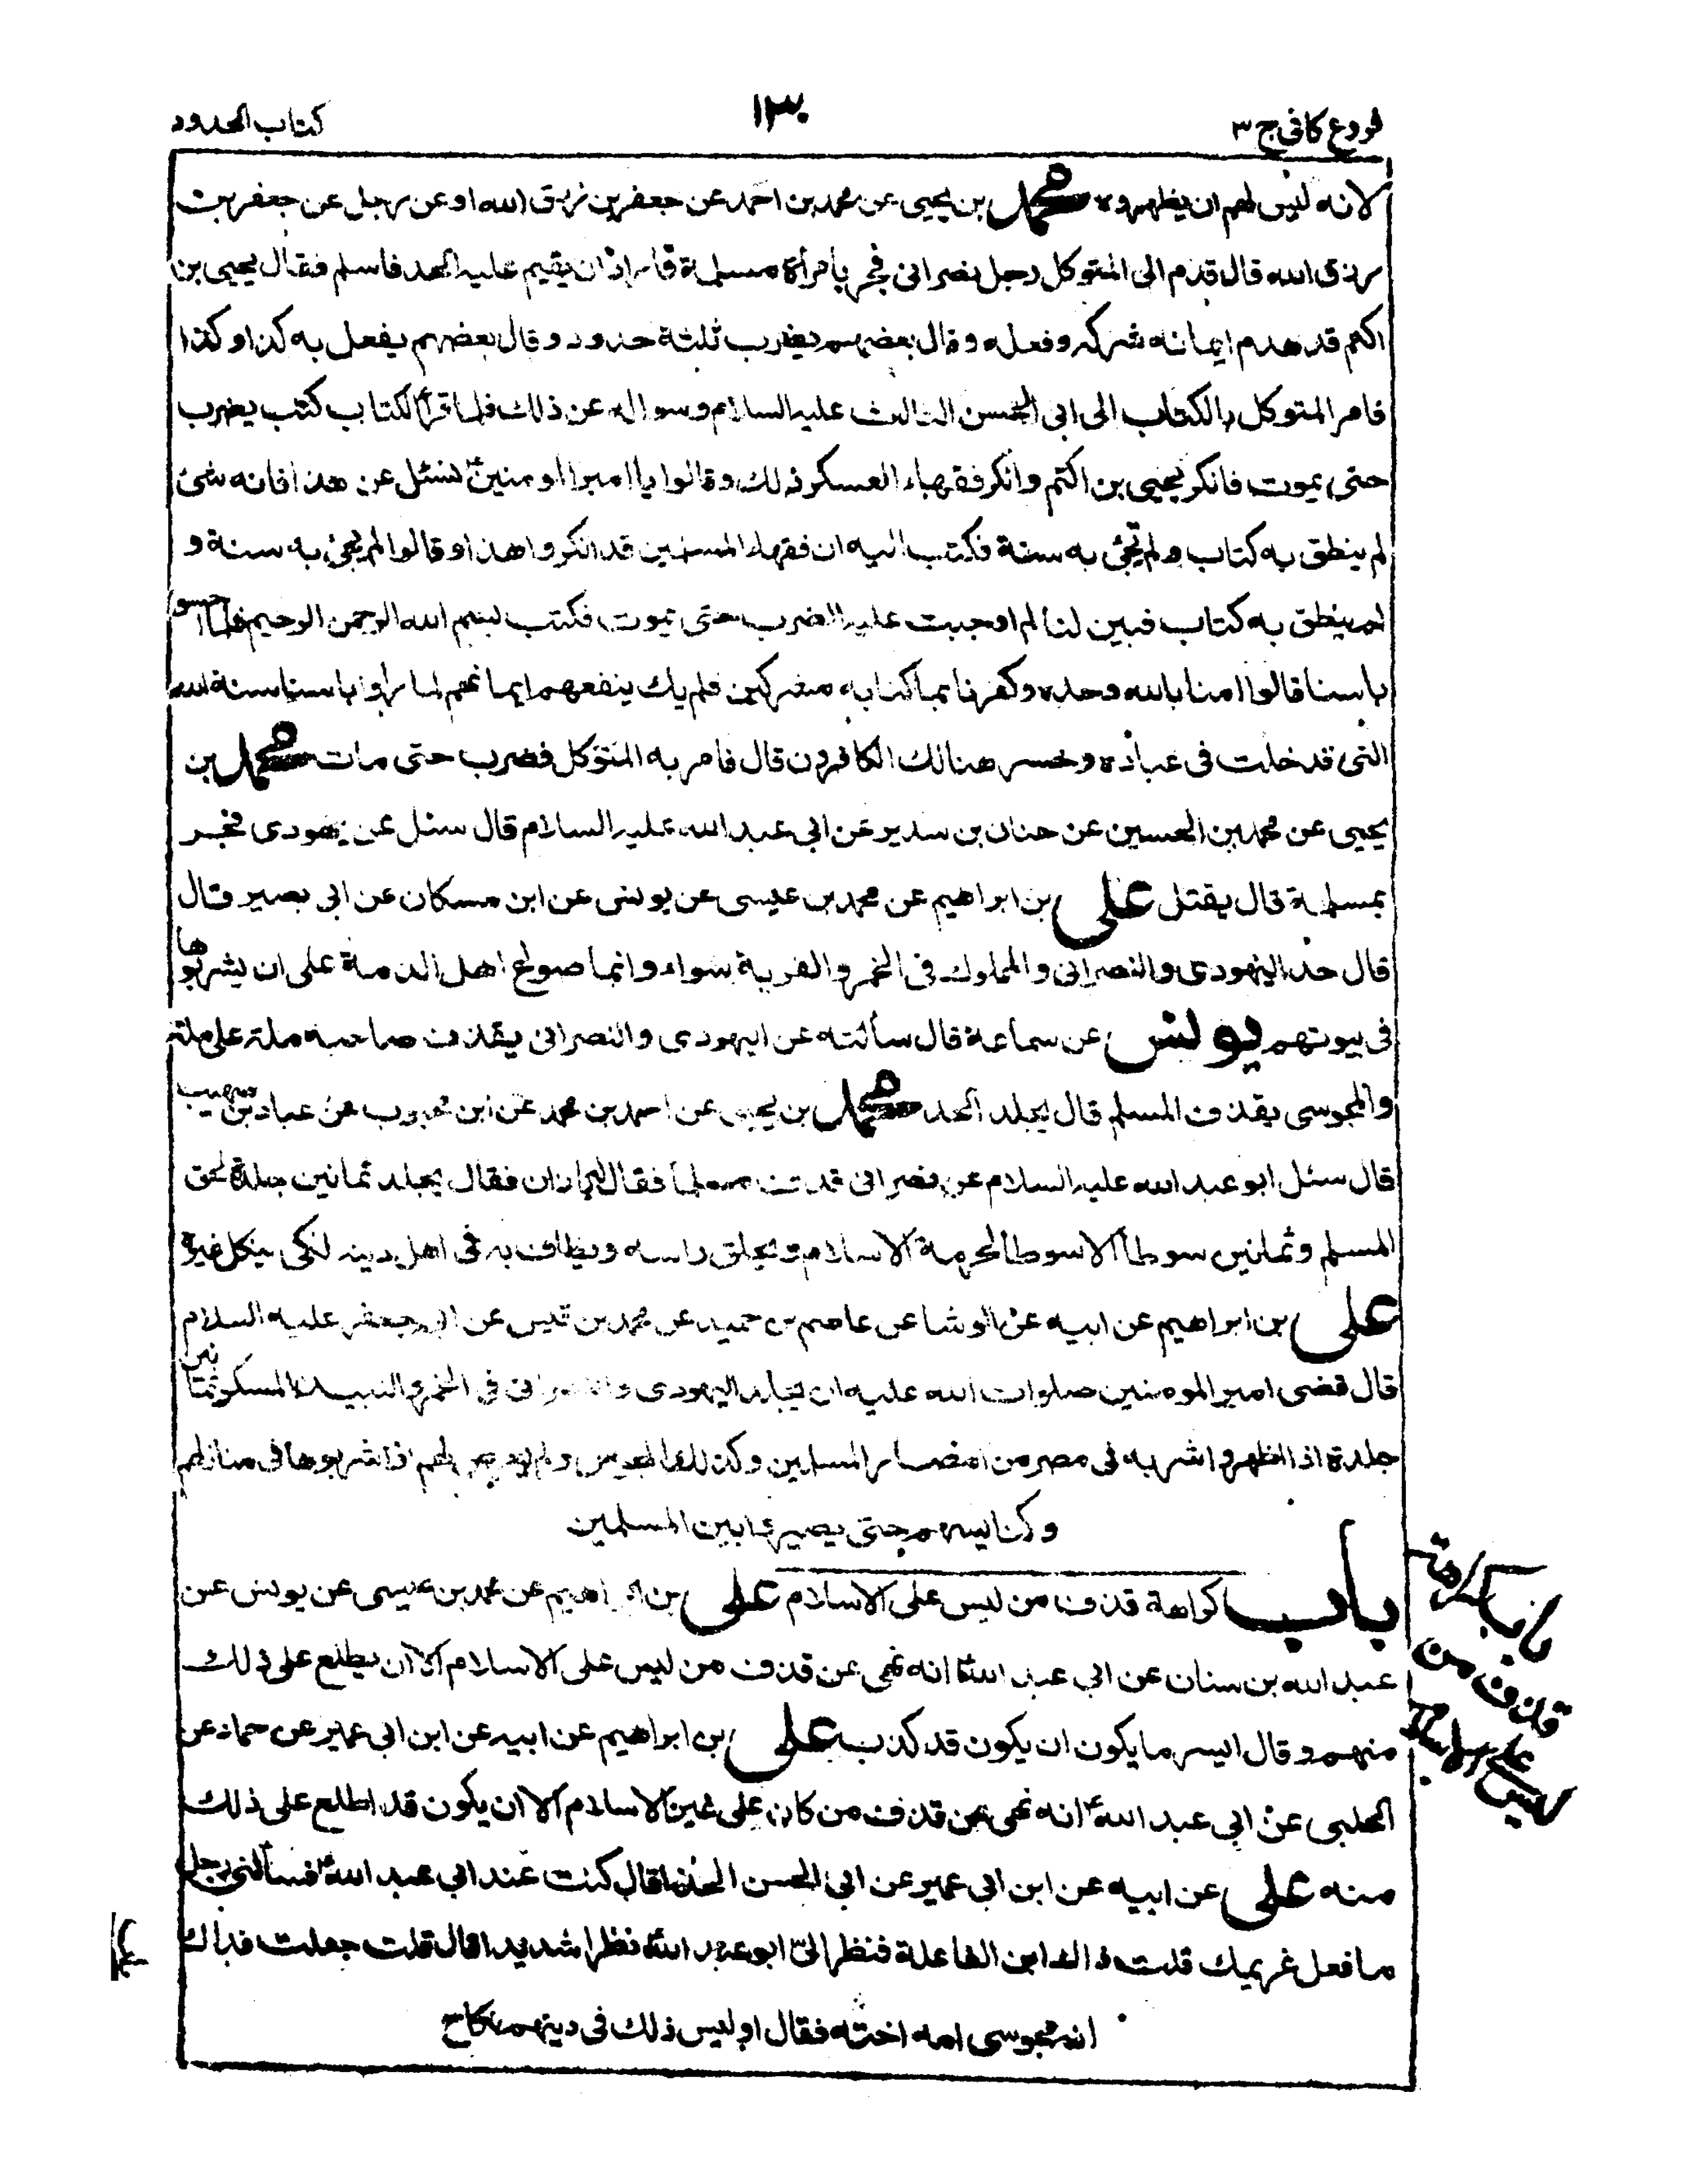 فروع كافى ج ٣
١٣٠
كتاب الحدود
لانه ليس لهم ان يظهروه محمد بن يحيى عن محمد بن احمد عن جعفر بن رزق الله او عن رجل عن جعفر بن
رزق الله قال قدم الى المتوكل رجل نصرانى فجر بامرأة مسلمة فاراد ان يقيم عليه الحد فاسلم فقال يحيى بن
اكثم قد هدم ايمانه شركه وفعله وقال بعضهم يضرب ثلثة حدود وقال بعضهم يفعل به كذا وكذا
فامر المتوكل بالكتاب الى ابى الحسن الثالث عليه السلام وسواله عن ذلك فلما قرأ الكتاب كتب يضرب
حتى يموت فانكر يحيى بن اكثم وانكر فقهاء العسكر ذلك وقالوا يا امير المومنين نسئل عن هذا فانه شئ
لم ينطق به كتاب ولم تجئ به سنة فكتب اليه ان فقهاء المسلمين قد انكروا هذا وقالوا لم يجئ به سنة و
لم ينطق به كتاب فبين لنا لم اوجبت عليه الضرب حتى يموت فكتب بسم الله الرحمن الرحيم فلما احسوا
باسنا قالوا امنا بالله وحده وكفرنا بما كنا به مشركين فلم يك ينفعهم ايمانهم لما راوا باسنا سنة الله
التى قد خلت فى عباده وخسر هنالك الكافرون قال فامر به المتوكل فضرب حتى مات محمد بن
يحيى عن محمد بن الحسين عن حنان بن سدير عن ابى عبد الله عليه السلام قال سئل عن يهودى فجر
بمسلمة قال يقتل على بن ابراهيم عن محمد بن عيسى عن يونس عن ابن مسكان عن ابى بصير قال
قال حد اليهودى والنصرانى والمملوك فى الخمر والفرية سواء وانما صولح اهل الذمة على ان يشربوها
فى بيوتهم يونس عن سماعة قال سألته عن اليهودى والنصرانى يقذف صاحبه ملة على ملة
والمجوسى يقذف المسلم قال يجلد الحد محمد بن يحيى عن احمد بن محمد عن ابن محبوب عن عباد بن صهيب
قال سئل ابو عبد الله عليه السلام عن نصرانى قذف مسلما فقال له يا زان فقال يجلد ثمانين جلدة لحق
المسلم وثمانين سوطا الا سوطا لحرمة الاسلام ويحلق راسه ويطاف به فى اهل دينه لكى ينكل غيره
على بن ابراهيم عن ابيه عن الوشا عن عاصم بن حميد عن محمد بن قيس عن ابى جعفر عليه السلام
قال قضى امير المومنين صلوات الله عليه ان يجلد اليهودى والنصرانى فى الخمر والنبيذ المسكر ثمانين
جلدة اذا اظهروا شربه فى مصر من امصار المسلمين وكذلك المجوس ولم يعرض لهم اذا شربوها فى منازلهم
وكنايسهم حتى يصيروا بين المسلمين
باب كراهة قذف من ليس على الاسلام على بن ابراهيم عن محمد بن عيسى عن يونس عن
عبد الله بن سنان عن ابى عبد الله ع انه نهى عن قذف من ليس على الاسلام الا ان يطلع على ذلك
منهم وقال ايسر ما يكون ان يكون قد كذب على بن ابراهيم عن ابيه عن ابن ابى عمير عن حماد عن
الحلبى عن ابى عبد الله ع انه نهى عن قذف من كان على غير الاسلام الا ان يكون قد اطلع على ذلك
منه على عن ابيه عن ابن ابى عمير عن ابى الحسن الحذا قال كنت عند ابى عبد الله ع فسألنى رجل
ما فعل غريمك قلت ذاك ابن الفاعلة فنظر الىّ ابو عبد الله ع نظرا شديدا قال قلت جعلت فداك
انه مجوسى امه اخته فقال اوليس ذلك فى دينهم نكاح
باب كراهة
قذف من
ليس على الاسلام